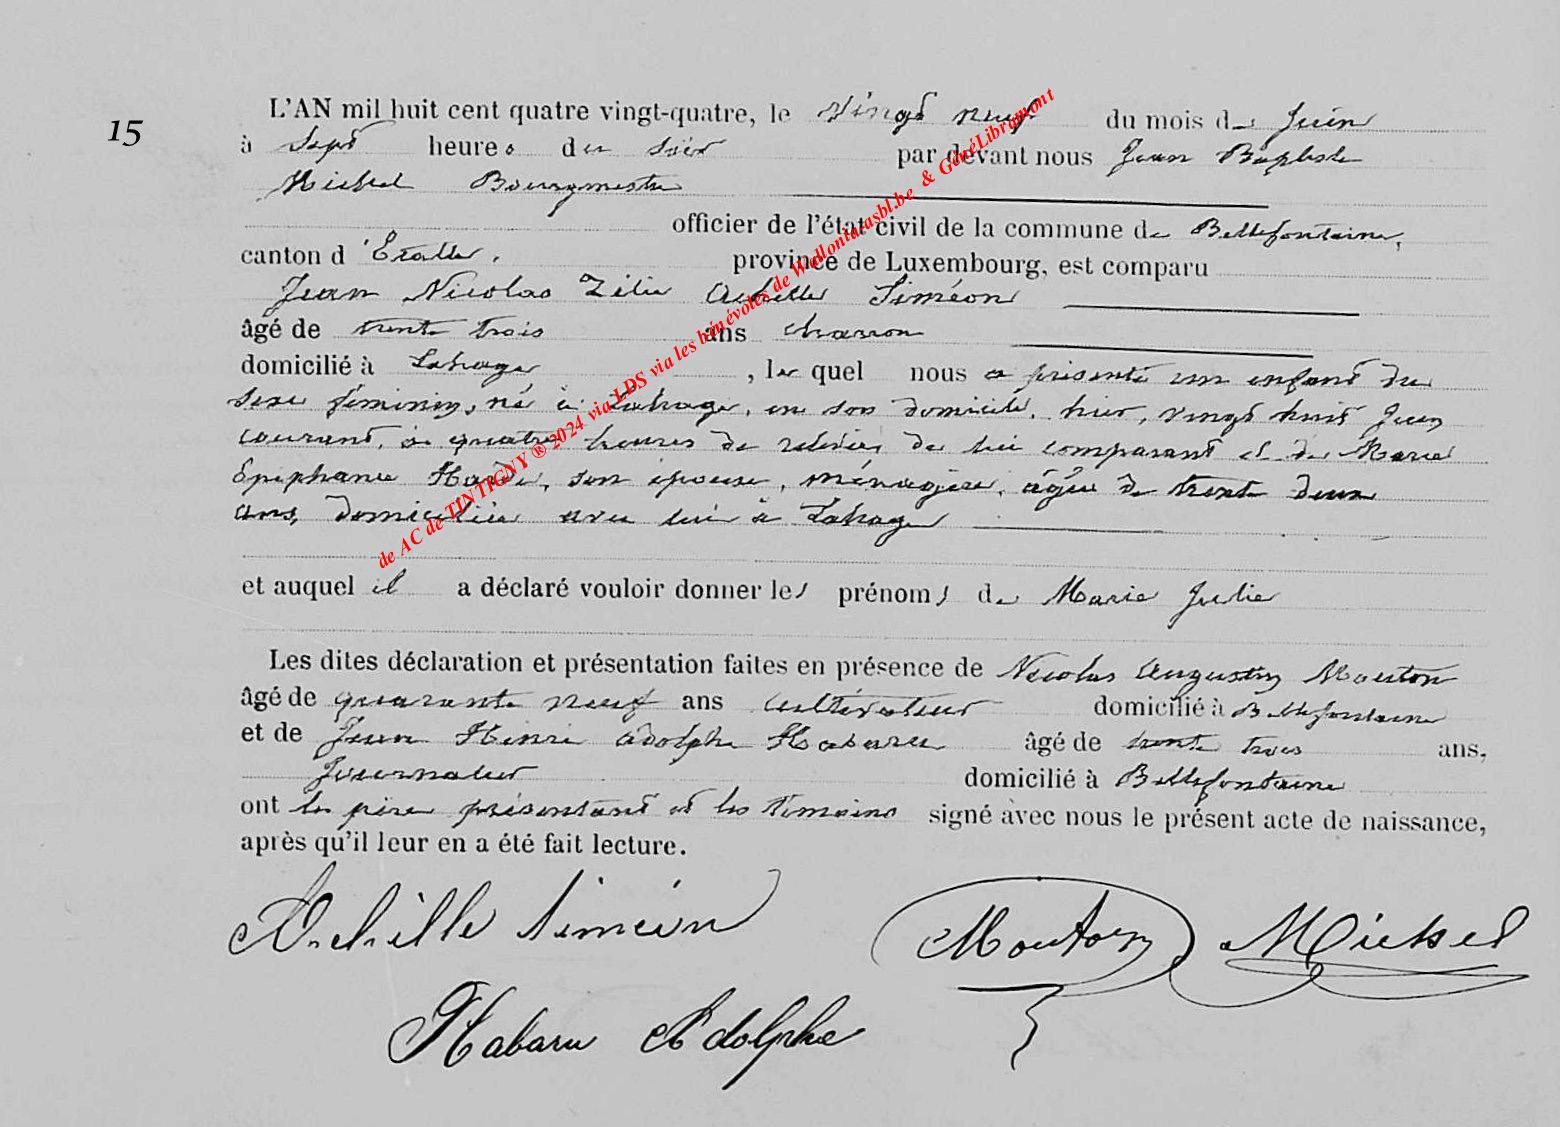 15
L'AN mil huit cent quatre vingt-quatre, le vingt neuf du mois de Juin
à sept heures du soir par devant nous Jean Baptiste
Michel Bourgmestre
officier de l'état civil de la commune de Bellefontaine,
canton d'Etalle, province de Luxembourg, est comparu
Jean Nicolas Zélie Achille Siméon
âgé de trente trois ans charron
domicilié à Lahage, lequel nous a présenté un enfant du
sexe féminin, né à Lahage, en son domicile, hier, vingt huit Juin
courant, à quatre heures de relevée, de lui comparant et de Marie
Epiphanie, son épouse, ménagère, âgée de trente deux
ans, domiciliée avec lui à Lahage
et auquel il a déclaré vouloir donner les prénoms de Marie Julie
Les dites déclaration et présentation faites en présence de Nicolas Augustin Mouton
âgé de quarante neuf ans cultivateur domicilié à Bellefontaine
et de Jean Henri Adolphe Habaru âgé de trente trois ans,
Journalier domicilié à Bellefontaine
ont le père présentant et les témoins signé avec nous le présent acte de naissance,
après qu'il leur en a été fait lecture.
Achille Siméon Mouton Michel
Habaru Adolphe
de AC de TINTIGNY ® 2024 via LDS via les bénévoles de Wallonia asbl.be & GénéLibramont